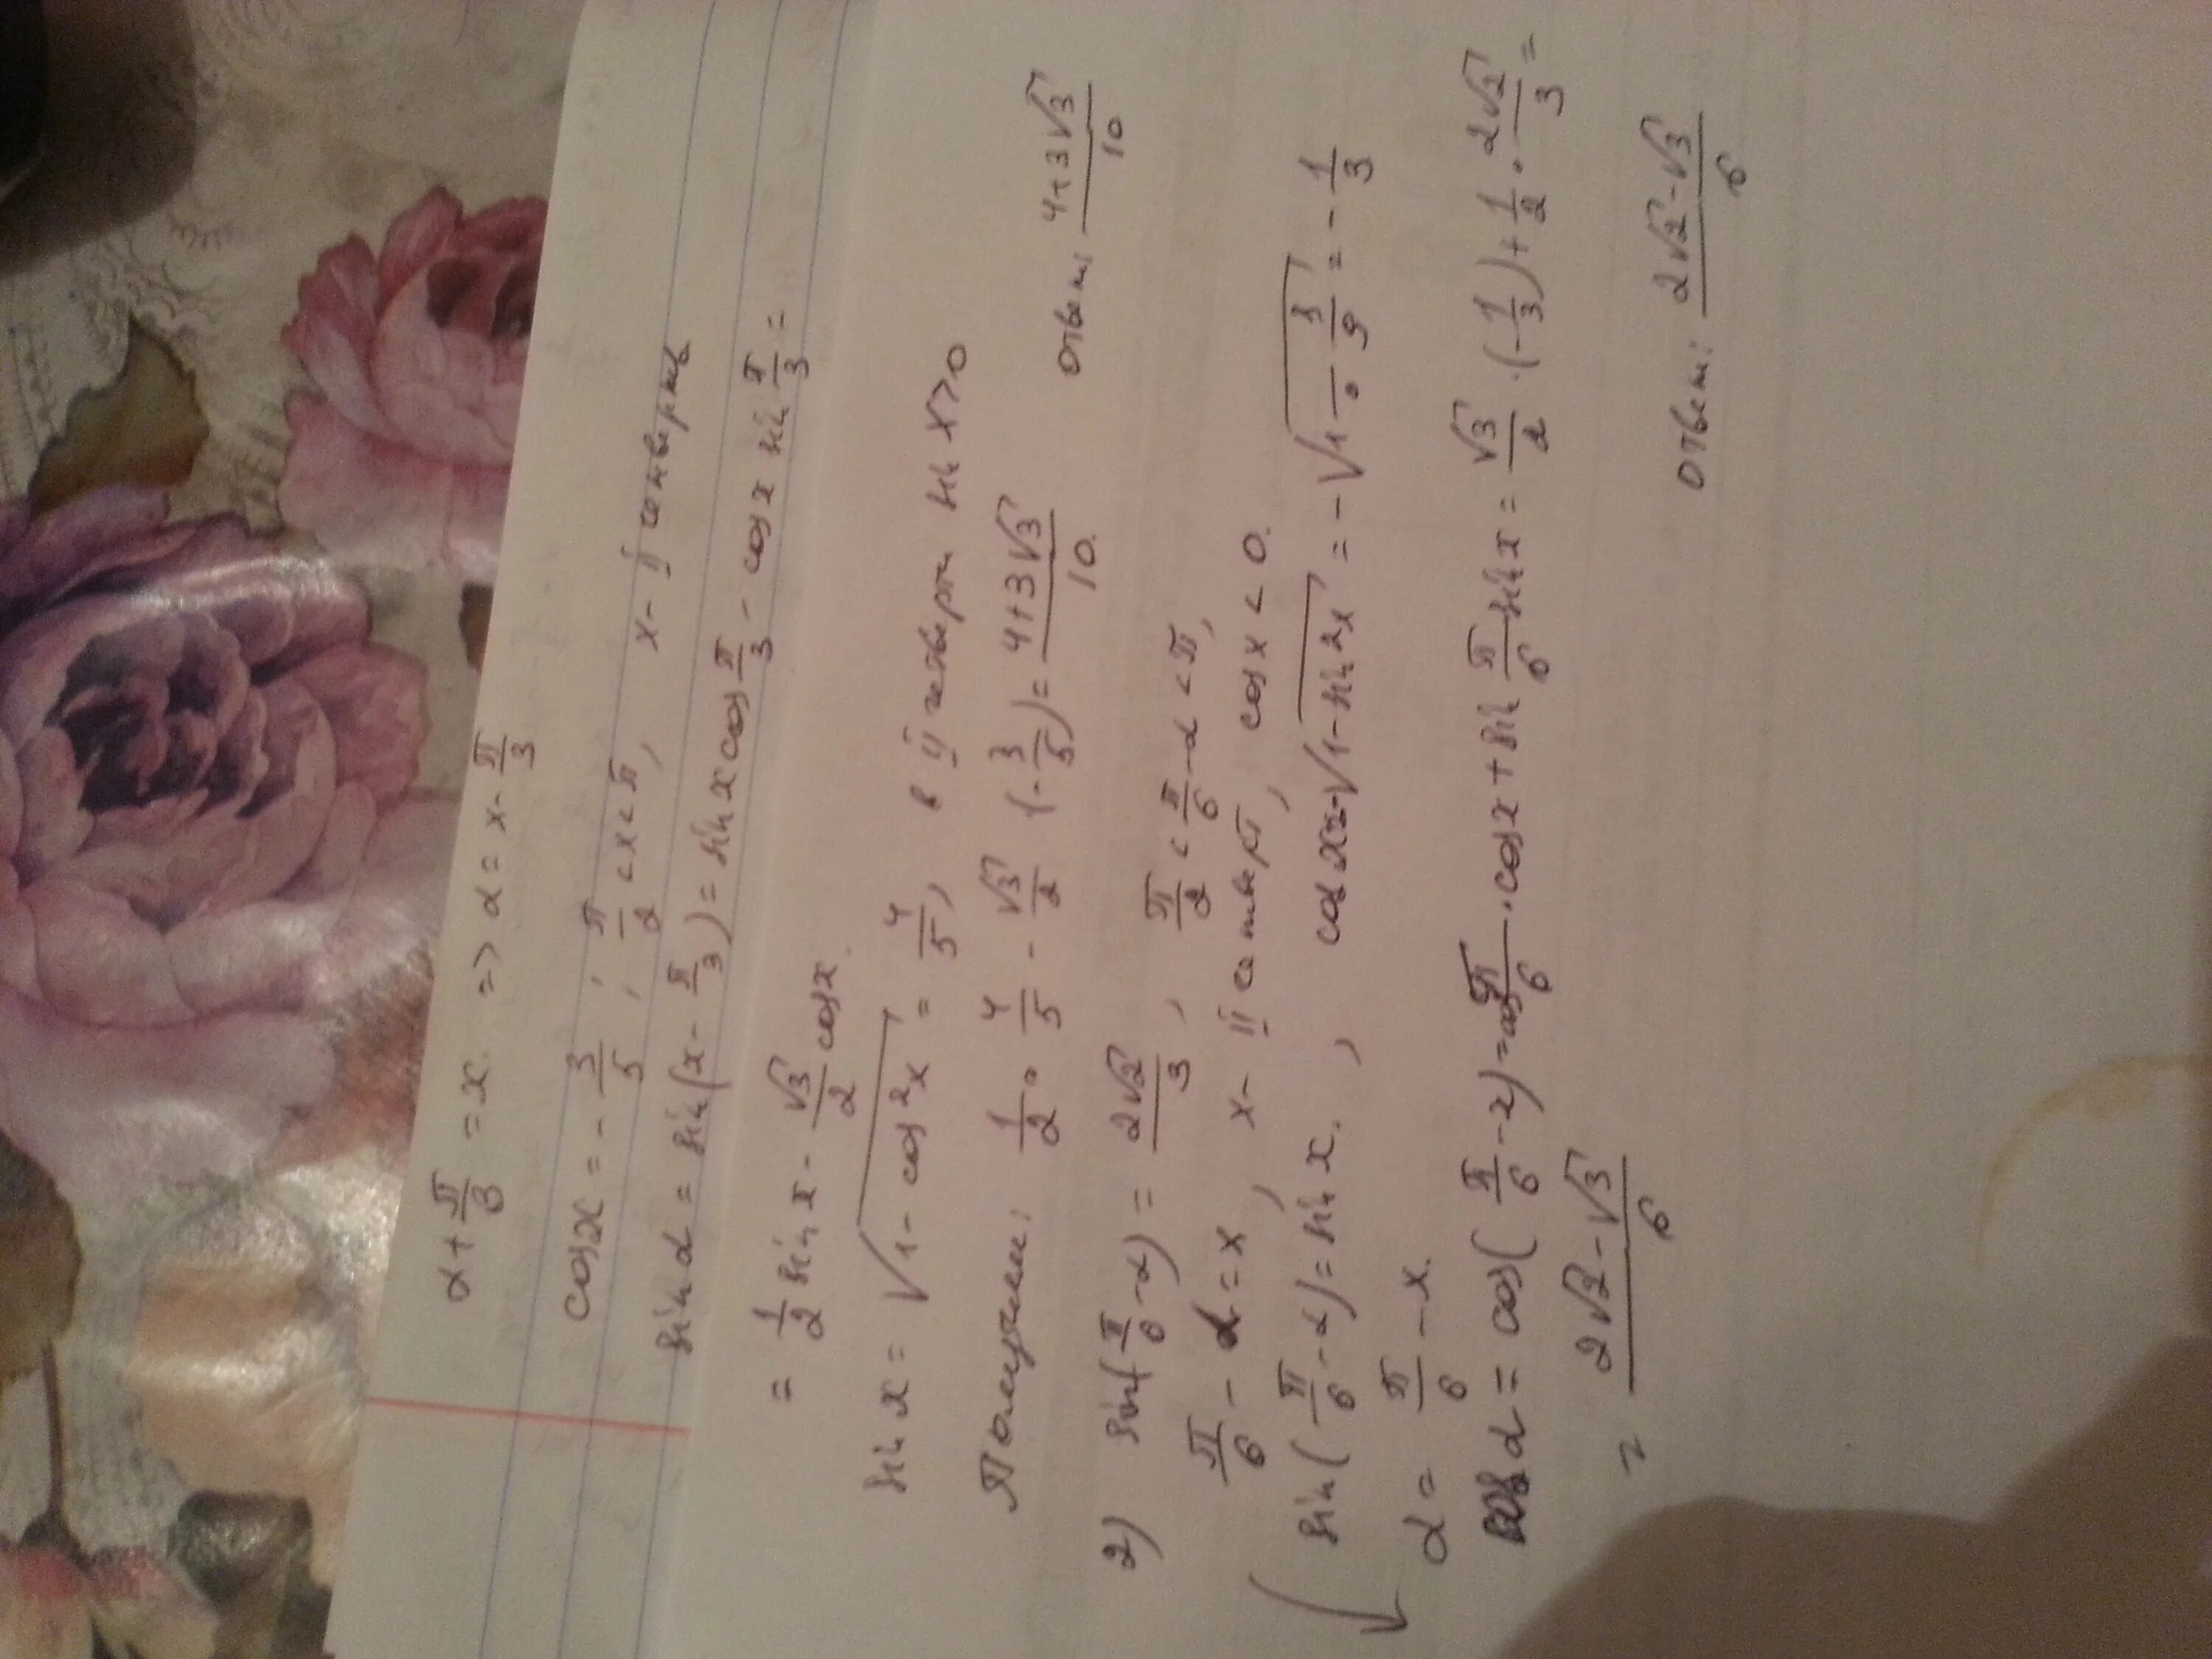 α + π/3 = x. => α = x - π/3
cos x = - 3/5 ; π/2 < x < π, x - II четверть
sin α = sin(x - π/3) = sin x cos π/3 - cos x sin π/3 =
= 1/2 sin x - √3/2 cos x.
sin x = √(1 - cos²x) = 4/5, в II четверти sin x > 0
Получаем: 1/2 · 4/5 - √3/2 (-3/5) = (4+3√3)/10.
ответ: (4+3√3)/10
2) sin(π/6 - α) = 2√2/3, π/2 < π/6 - α < π,
π/6 - α = x, x - II четверть, cos x < 0.
sin(π/6 - α) = sin x., cos x = -√(1 - sin²x) = -√(1 - /9) = - 1/3
α = π/6 - x.
cos α = cos(π/6 - x) = cos π/6 · cos x + sin π/6 sin x = √3/2 · (-1/3) + 1/2 · 2√2/3 =
= (2√2 - √3)/6
ответ: (2√2 - √3)/6